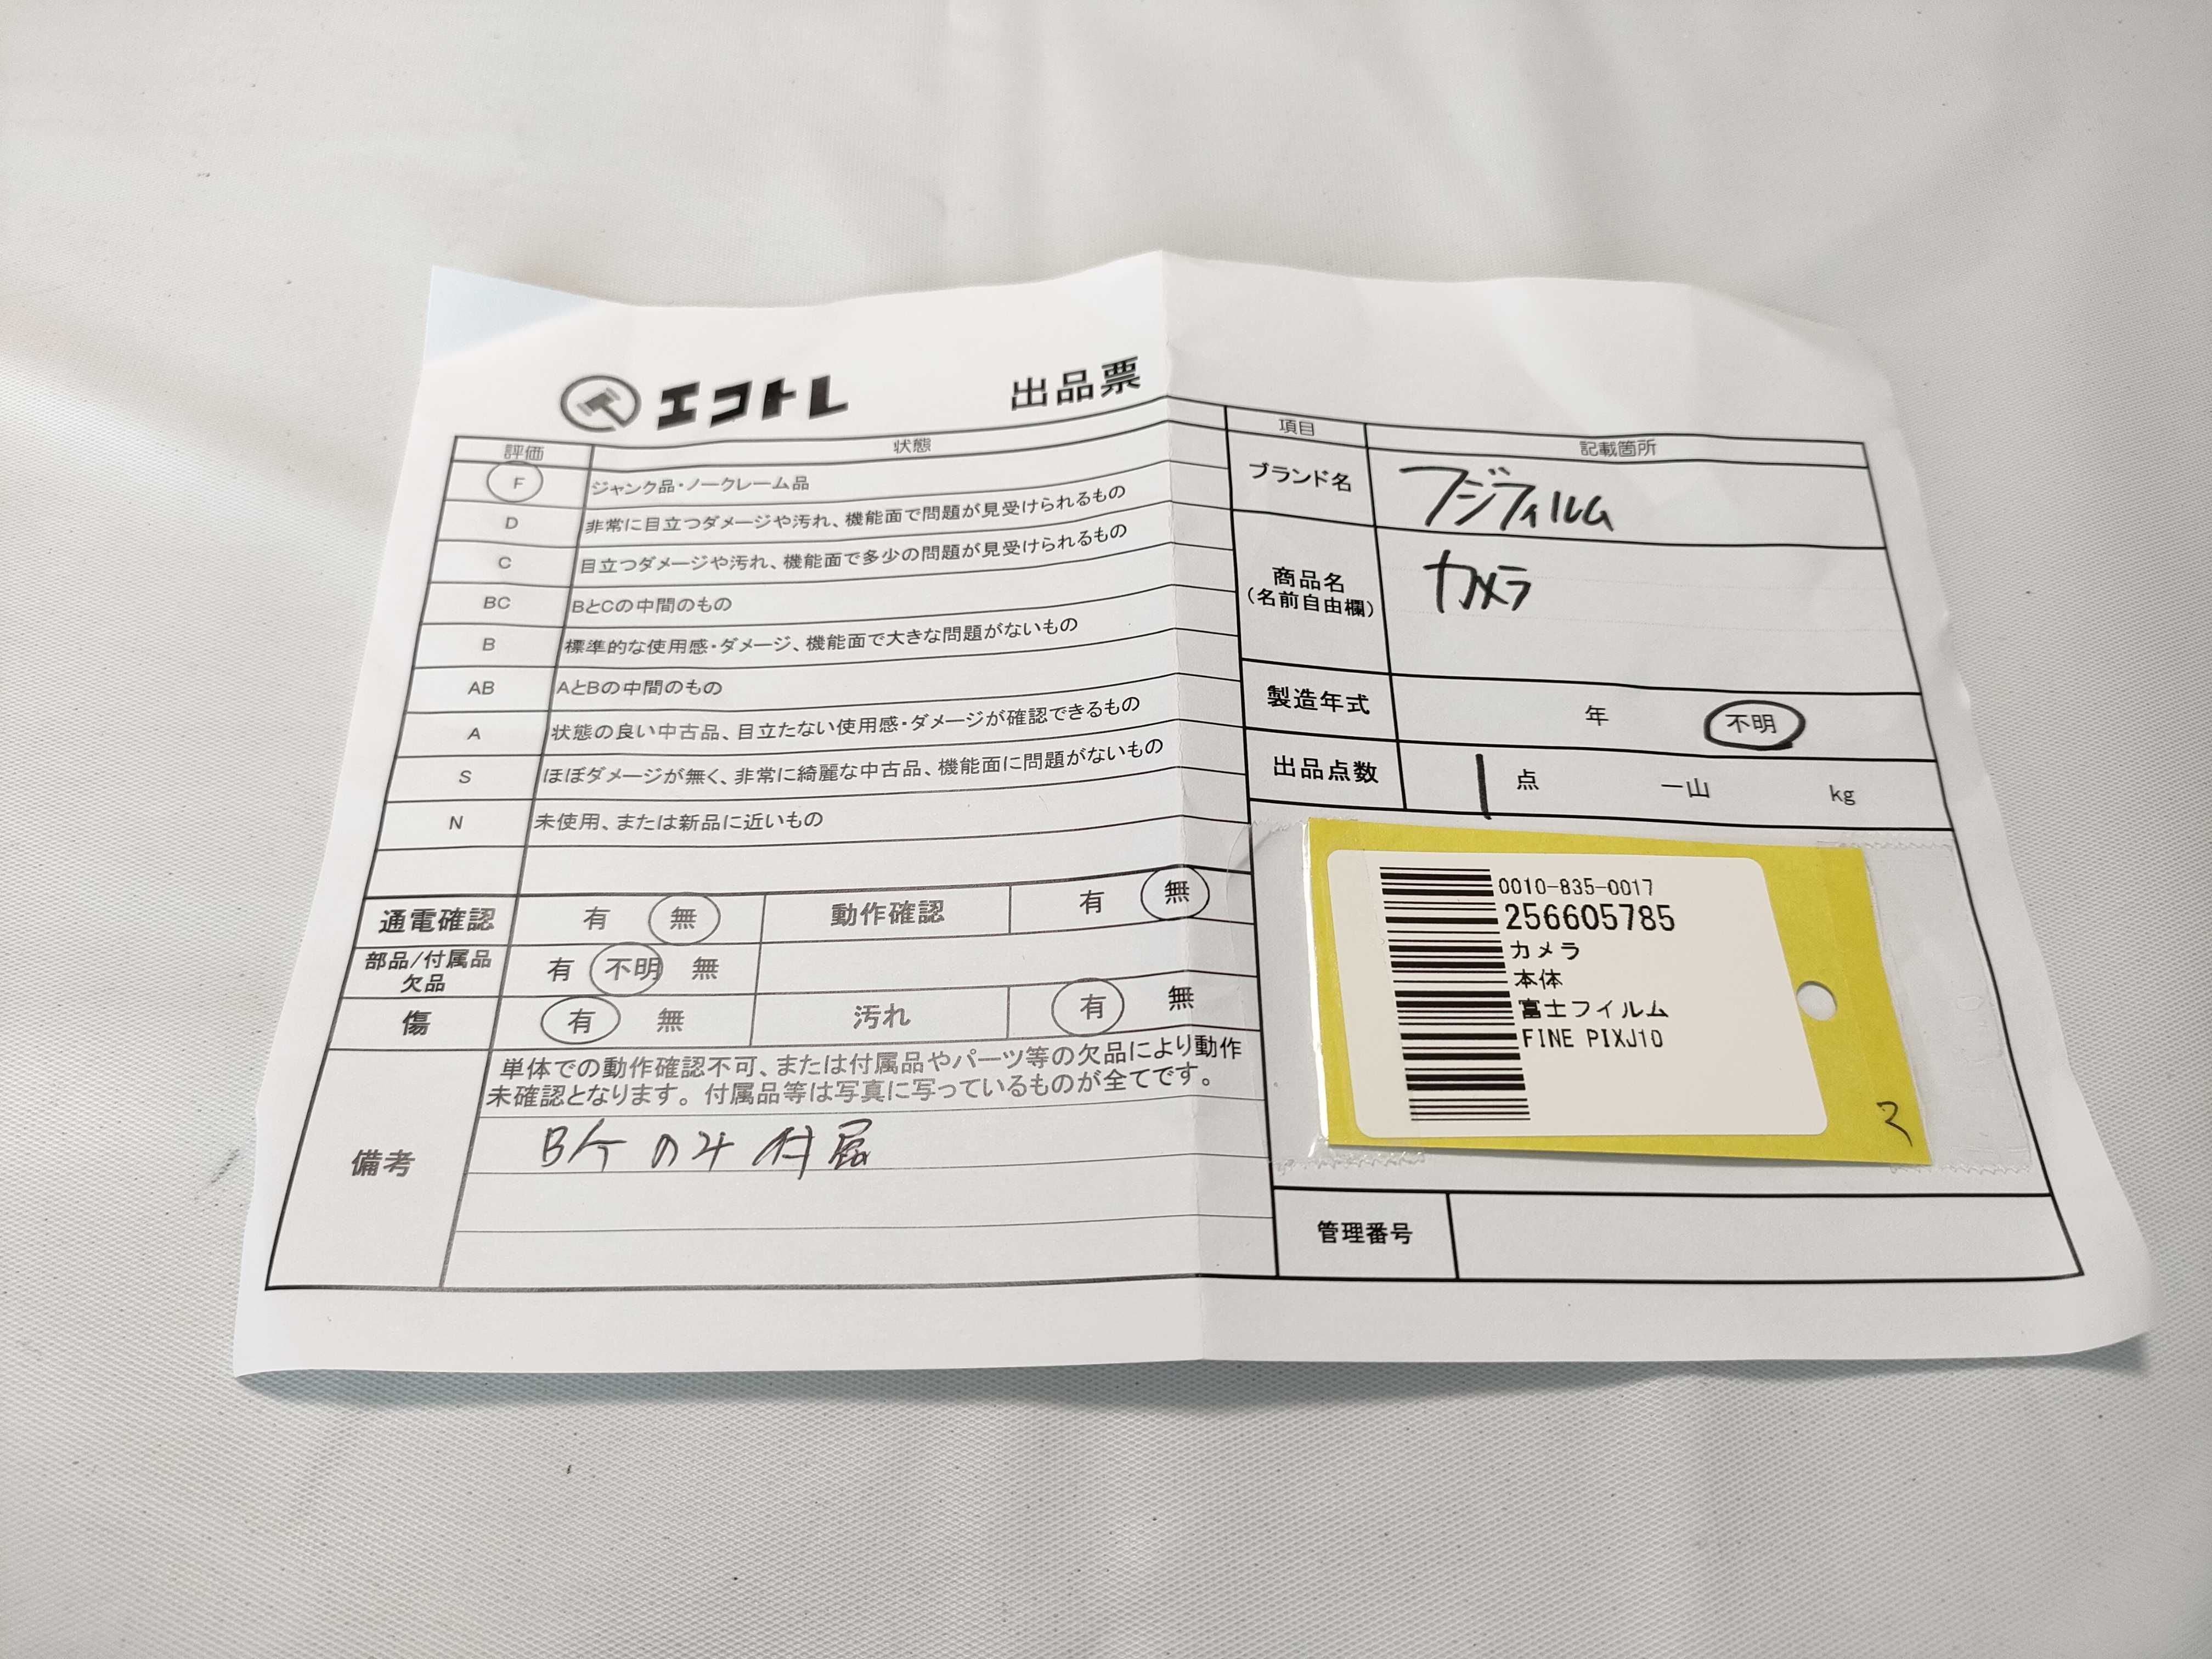 エコトレ 出品票
評価 状態
F ジャンク品・ノークレーム品
D 非常に目立つダメージや汚れ、機能面で問題が見受けられるもの
C 目立つダメージや汚れ、機能面で多少の問題が見受けられるもの
BC BとCの中間のもの
B 標準的な使用感・ダメージ、機能面で大きな問題がないもの
AB AとBの中間のもの
A 状態の良い中古品、目立たない使用感・ダメージが確認できるもの
S ほぼダメージが無く、非常に綺麗な中古品、機能面に問題がないもの
N 未使用、または新品に近いもの
通電確認 有 無 動作確認 有 無
部品/付属品
欠品 有 不明 無
傷 有 無 汚れ 有 無
備考
単体での動作確認不可、または付属品やパーツ等の欠品により動作
未確認となります。付属品等は写真に写っているものが全てです。
Bケのみ付属
項目 記載箇所
ブランド名 フジフィルム
商品名
(名前自由欄) カメラ
製造年式 年 不明
出品点数 1 点 一山 kg
0010-835-0017
256605785
カメラ
本体
富士フイルム
FINE PIXJ10
管理番号